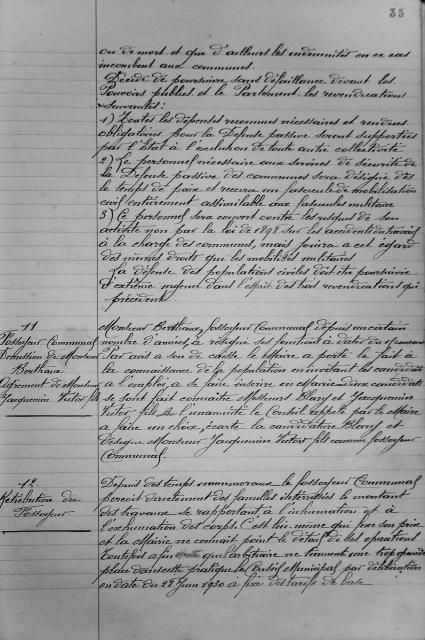 35
ou de mort et que d'ailleurs les indemnités en ce cas
incombent aux communes.
Décide de poursuivre sans défaillance devant les
Pouvoirs publics et le Parlement les revendications
suivantes:
1) Toutes les dépenses reconnues nécessaires et rendues
obligatoires pour la Défense passive seront supportées
par l'Etat à l'exclusion de toute autre collectivité
2) Le personnel nécessaire aux services de sécurité de
la Défense passive des communes sera désigné dès
le temps de paix et recevra un fascicule de mobilisation
civil entièrement assimilable aux fascicules militaire
3) Ce personnel sera couvert contre les risques de son
activité non par la loi de 1898 sur les accidents de travail
à la charge des communes, mais jouira a cet égard
des mêmes droits que les mobilisés militaires
La défense des populations civiles doit être poursuivie
d'extrême urgence dans l'esprit des trois revendications qui
précèdent
11
Fossoyeur Communal
Démission de Monsieur
Berthaux
Agrément de Monsieur
Jacquemin Victor fils
Monsieur Berthaux, fossoyeur Communal depuis un certain
nombre d'années, a résigné ses fonctions à dater du
Par avis a son de caisse le Maire a porté le fait à
la connaissance de la population en invitant les candidats
a l'emploi, a se faire inscrire en Mairie deux candidats
se sont fait connaître Messieurs Blary et Jacquemin
Victor fils à l'unanimité le Conseil appelé par le Maire
a faire un choix, écarte la candidature Blary et
désigne Monsieur Jacquemin Victor fils comme fossoyeur
Communal.
12
Rétribution du
Fossoyeur
Depuis des temps immémoraux le fossoyeur Communal
perçoit directement des familles intéressées le montant
des travaux se rapportant à l'inhumation et à
l'exhumation des corps. C'est lui-même qui fixe son prix
et la Mairie ne connait point le détail de ses opérations
Toutefois afin que l'arbitraire ne tienne une trop grande
place dans cette pratique le Conseil Municipal par délibération
en date du 28 Juin 1930 à fixé des tarifs de base